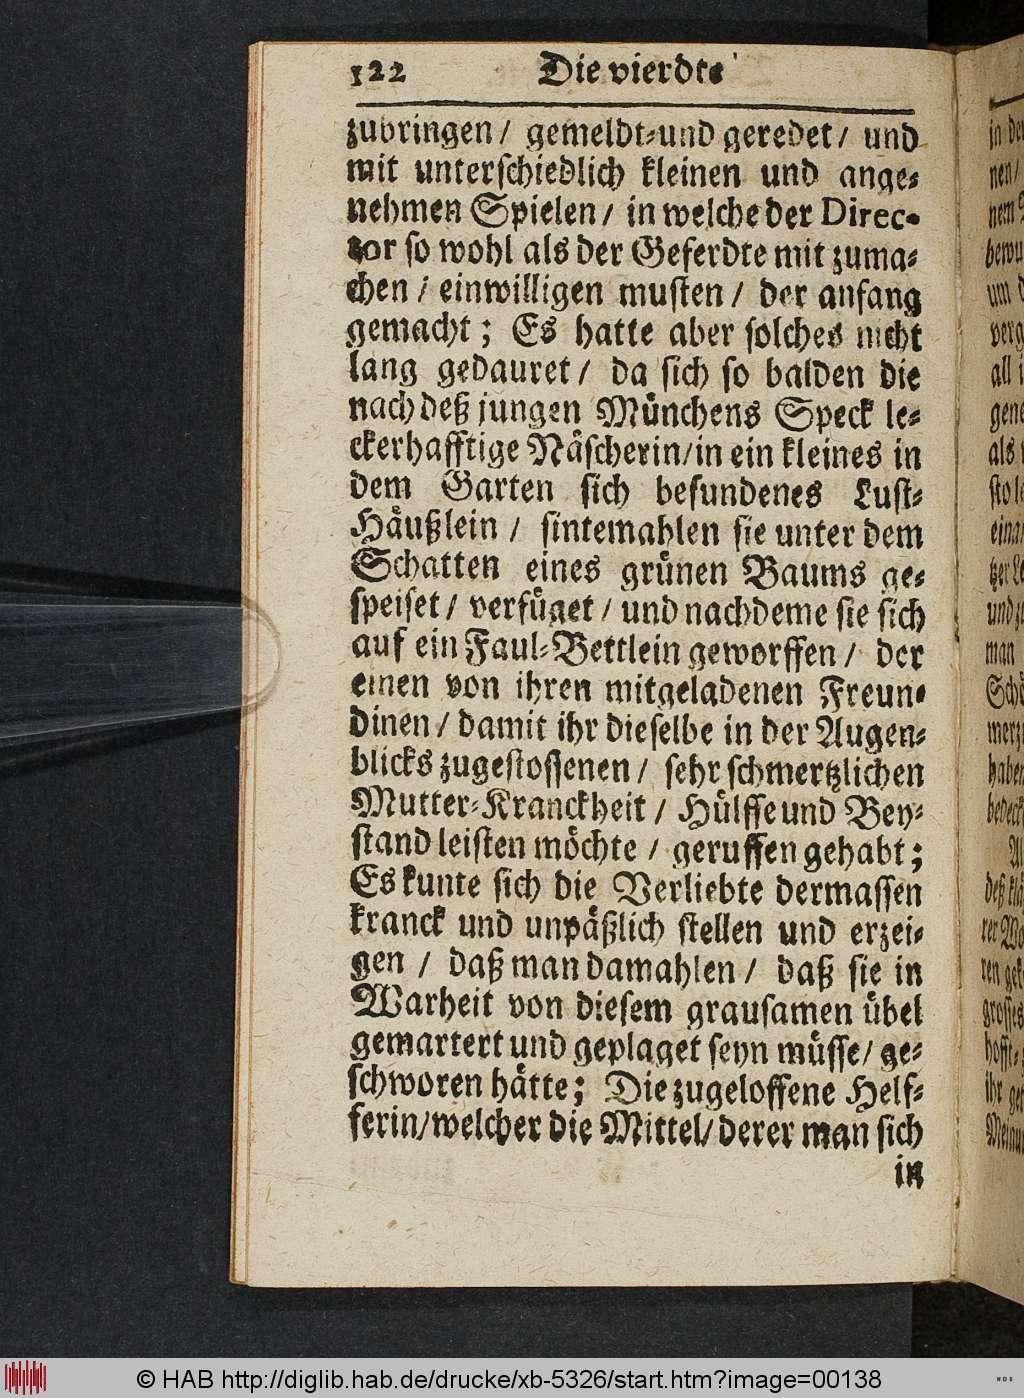 122 Die vierdte
zubringen / gemeldt-und geredet / und
mit unterschiedlich kleinen und ange-
nehmen Spielen / in welche der Direc-
tor so wohl als der Geferdte mit zuma-
chen / einwilligen musten / der anfang
gemacht ; Es hatte aber solches nicht
lang gedauret / da sich so balden die
nach deß jungen Münchens Speck le-
ckerhafftige Näscherin/in ein kleines in
dem Garten sich befundenes Lust-
Häußlein / sintemahlen sie unter dem
Schatten eines grünen Baums ge-
speiset / verfüget / und nachdeme sie sich
auf ein Faul-Bettlein geworffen / der
einen von ihren mitgeladenen Freun-
dinen / damit ihr dieselbe in der Augen-
blicks zugestossenen / sehr schmertzlichen
Mutter-Kranckheit / Hülffe und Bey-
stand leisten möchte / geruffen gehabt ;
Es kunte sich die Verliebte dermassen
kranck und unpäßlich stellen und erzei-
gen / daß man damahlen / daß sie in
Warheit von diesem grausamen übel
gemartert und geplaget seyn müsse / ge-
schworen hätte ; Die zugeloffene Helf-
ferin/welcher die Mittel/derer man sich
in
© HAB http://diglib.hab.de/drucke/xb-5326/start.htm?image=00138